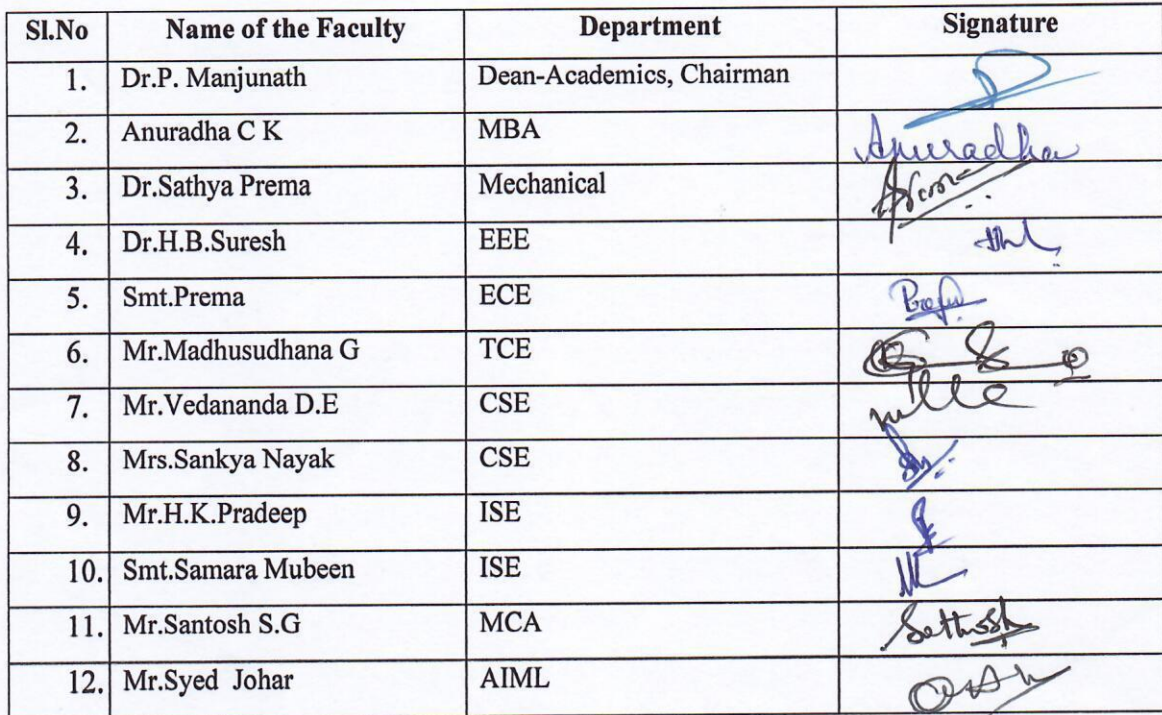 Sl.No Name of the Faculty Department Signature
1. Dr.P. Manjunath Dean-Academics, Chairman
2. Anuradha C K MBA Anuradha
3. Dr.Sathya Prema Mechanical
4. Dr.H.B.Suresh EEE
5. Smt.Prema ECE
6. Mr.Madhusudhana G TCE
7. Mr.Vedananda D.E CSE
8. Mrs.Sankya Nayak CSE
9. Mr.H.K.Pradeep ISE
10. Smt.Samara Mubeen ISE
11. Mr.Santosh S.G MCA
12. Mr.Syed Johar AIML